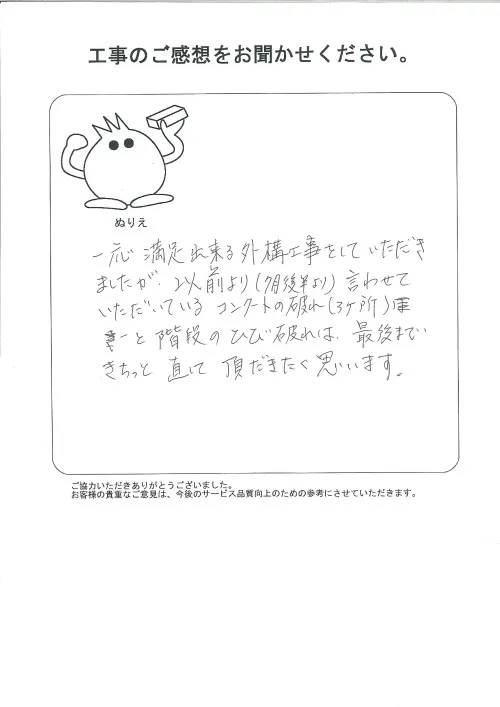 工事のご感想をお聞かせください。
ぬりえ
一応 満足出来る外構工事をしていただき
ましたが、以前より(7月後半より) 言わせて
いただいている コンクートの破れ(3ヶ所)庫
と 階段のひび破れは、最後まで
きちっと 直して 頂だきたく思います。
ご協力いただきありがとうございました。
お客様の貴重なご意見は、今後のサービス品質向上のための参考にさせていただきます。